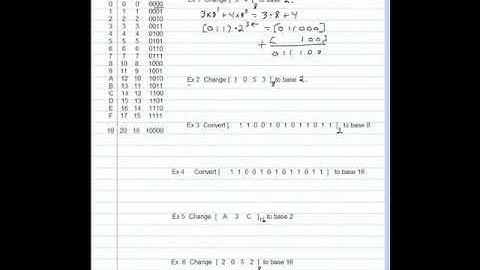 0 0 0 0000
1 1 1 0001
2 2 2 0010
3 3 3 0011
4 4 4 0100
5 5 5 0101
6 6 6 0110
7 7 7 0111
8 10 8 1000
9 11 9 1001
A 12 10 1010
B 13 11 1011
C 14 12 1100
D 15 13 1101
E 16 14 1110
F 17 15 1111
10 20 16 10000
to base 2.
3×8¹+4×8⁰ = 3·8+4
[011]·2³ = [011000]
+
011100
Ex 2 Change [ 1 0 5 3 ]₈ to base 2.
Ex 3 Convert [ 1 1 0 0 1 0 1 0 1 1 0 1 1 ]₂ to base 8
Ex 4 Convert [ 1 1 0 0 1 0 1 0 1 1 0 1 1 ] to base 16
Ex 5 Change [ A 3 C ]₁₆ to base 2
Ex 6 Change [ 2 0 5 2 ]₈ to base 16